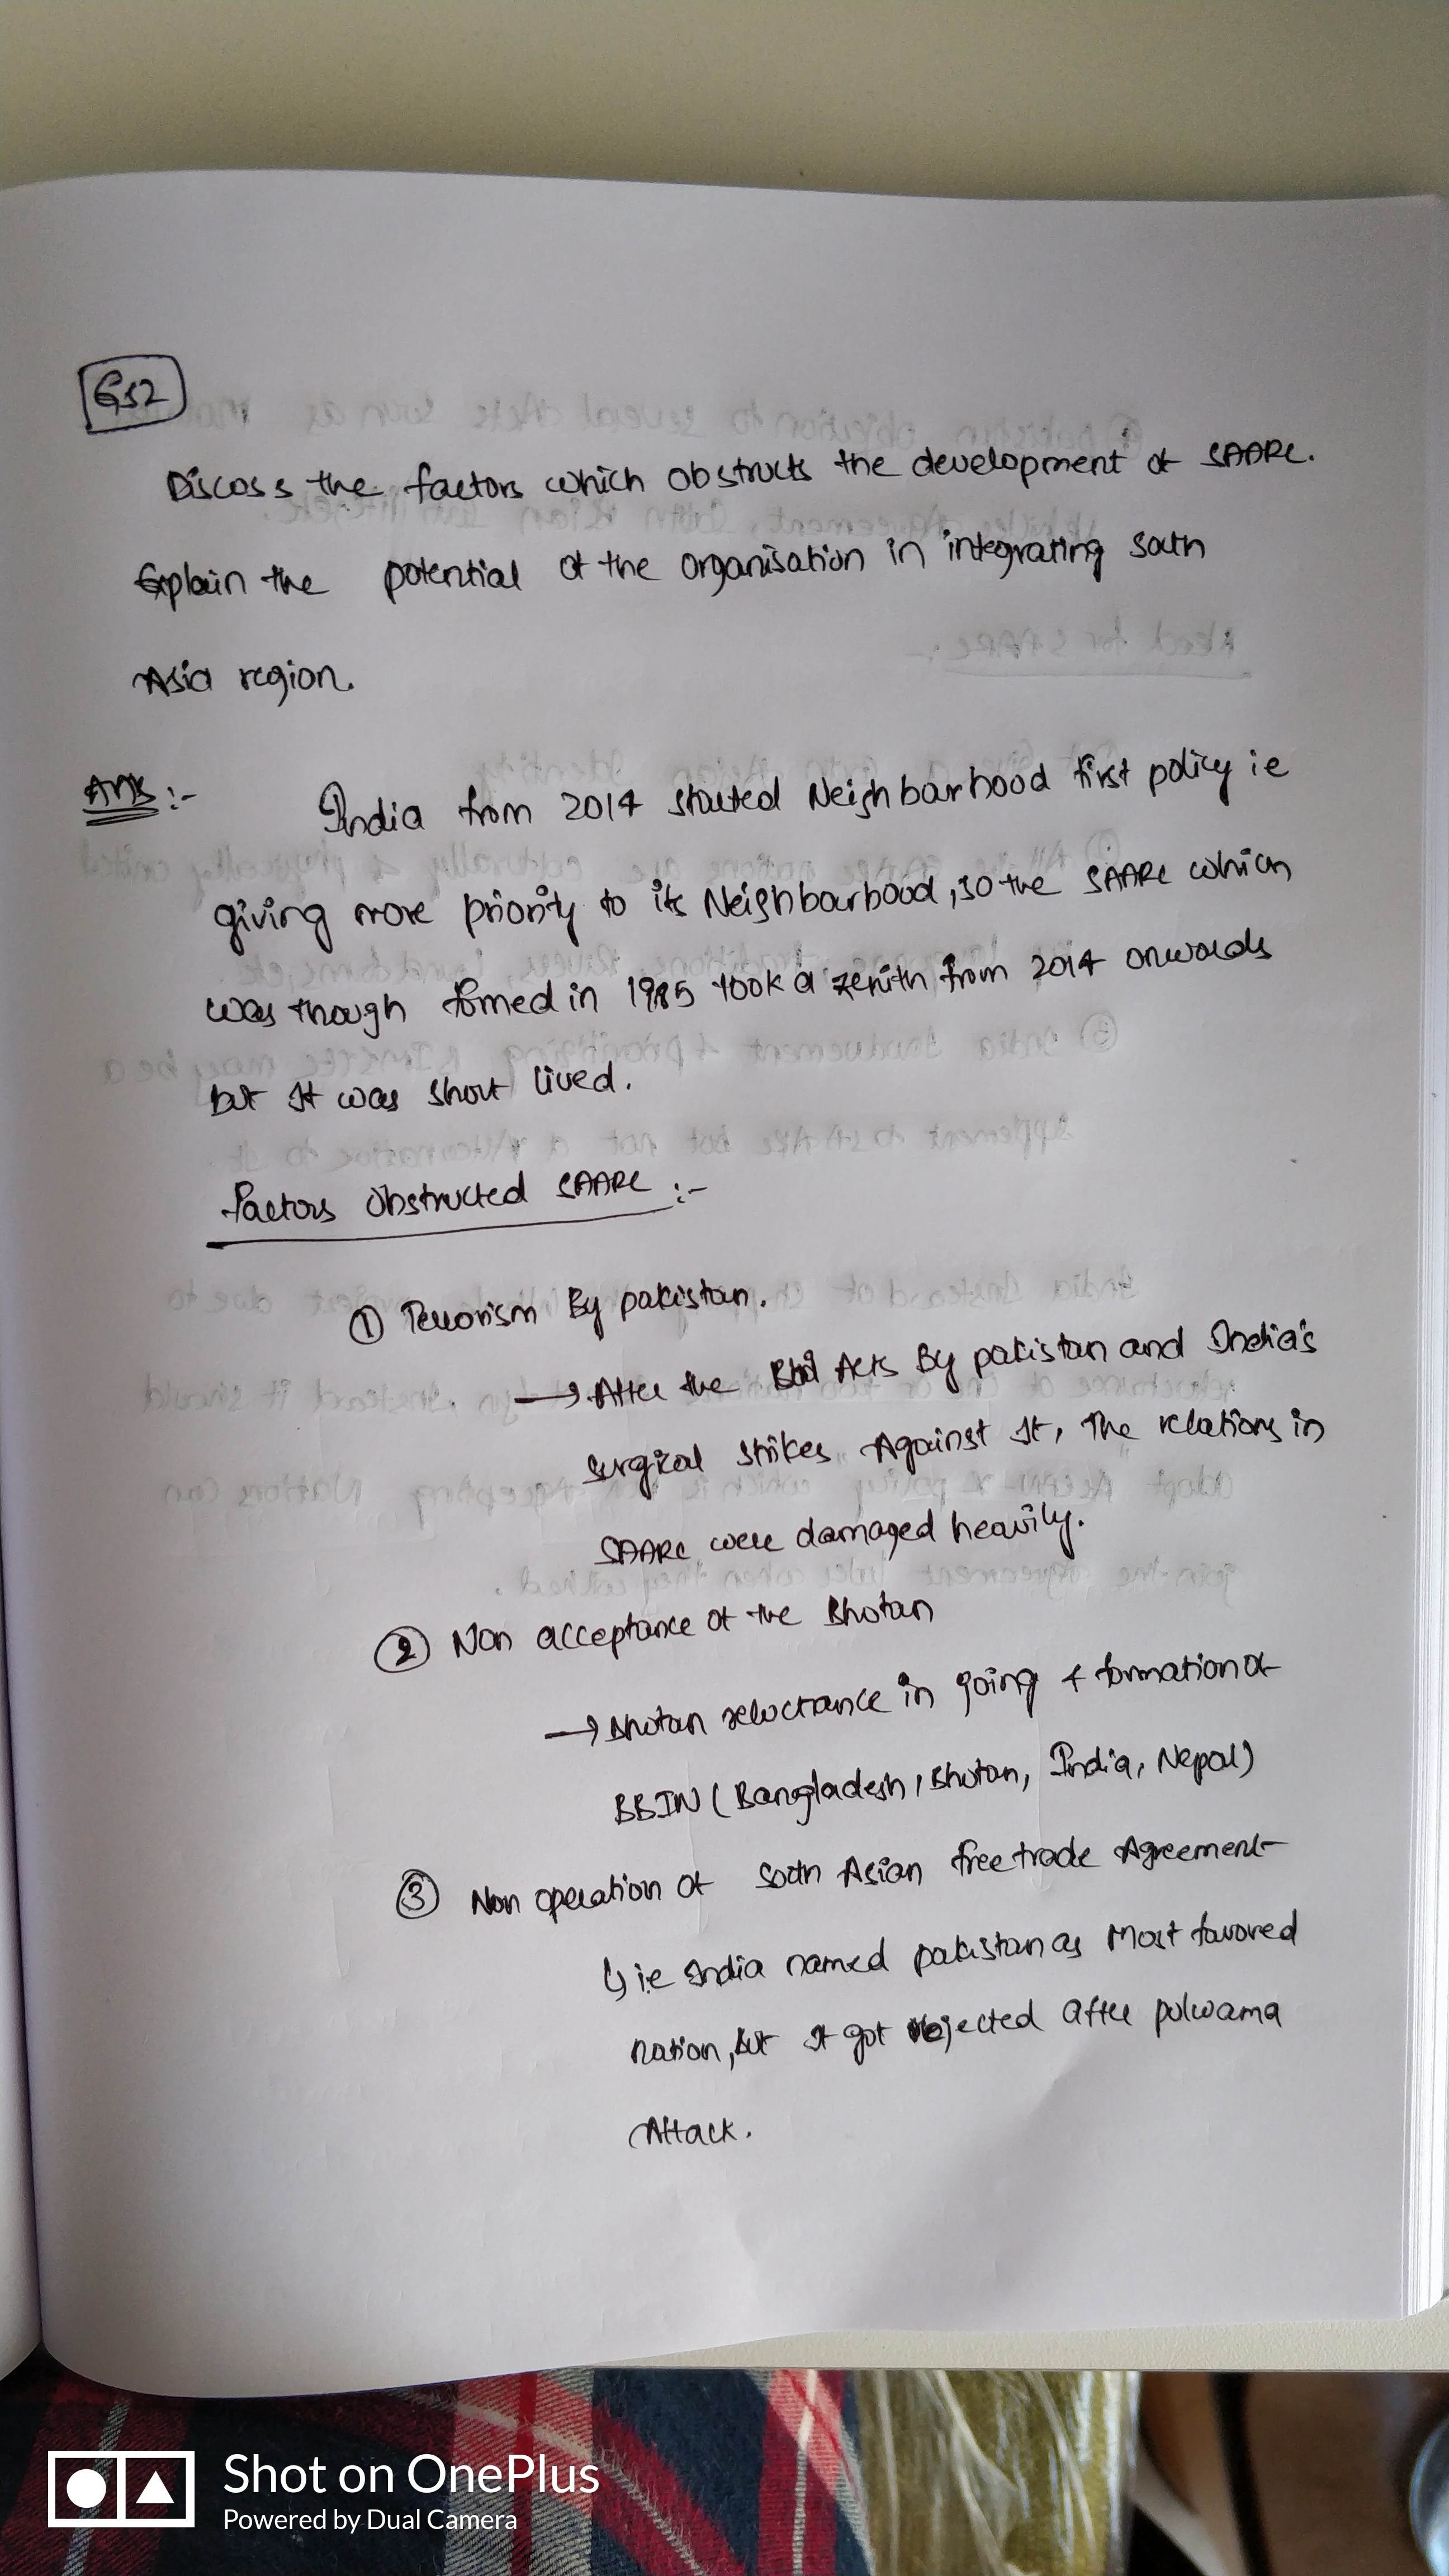 GS2
Discoss the factors which obstructs the development of SAARC.
Explain the potential of the organisation in integrating South
Asia region.
Ans :-
India from 2014 started Neighbarhood first policy ie
giving more priority to its Neighbourhood, so the SAARC which
was though formed in 1985 took a zenith from 2014 onwards
but It was short lived.
Factors Obstructed SAARC :-
① Terrorism By pakistan.
→ After the Acts By pakistan and India's
surgical strikes Against It, The relations in
SAARC were damaged heavily.
② Non acceptance of the Bhotan
→ Bhotan reluctance in going & formation of
BBIN (Bangladesh, Bhutan, India, Nepal)
③ Non operation of South Asian free trade Agreement
↳ i.e India named pakistan as Most favored
nation, but It got rejected after pulwama
Attack.
Shot on OnePlus
Powered by Dual Camera